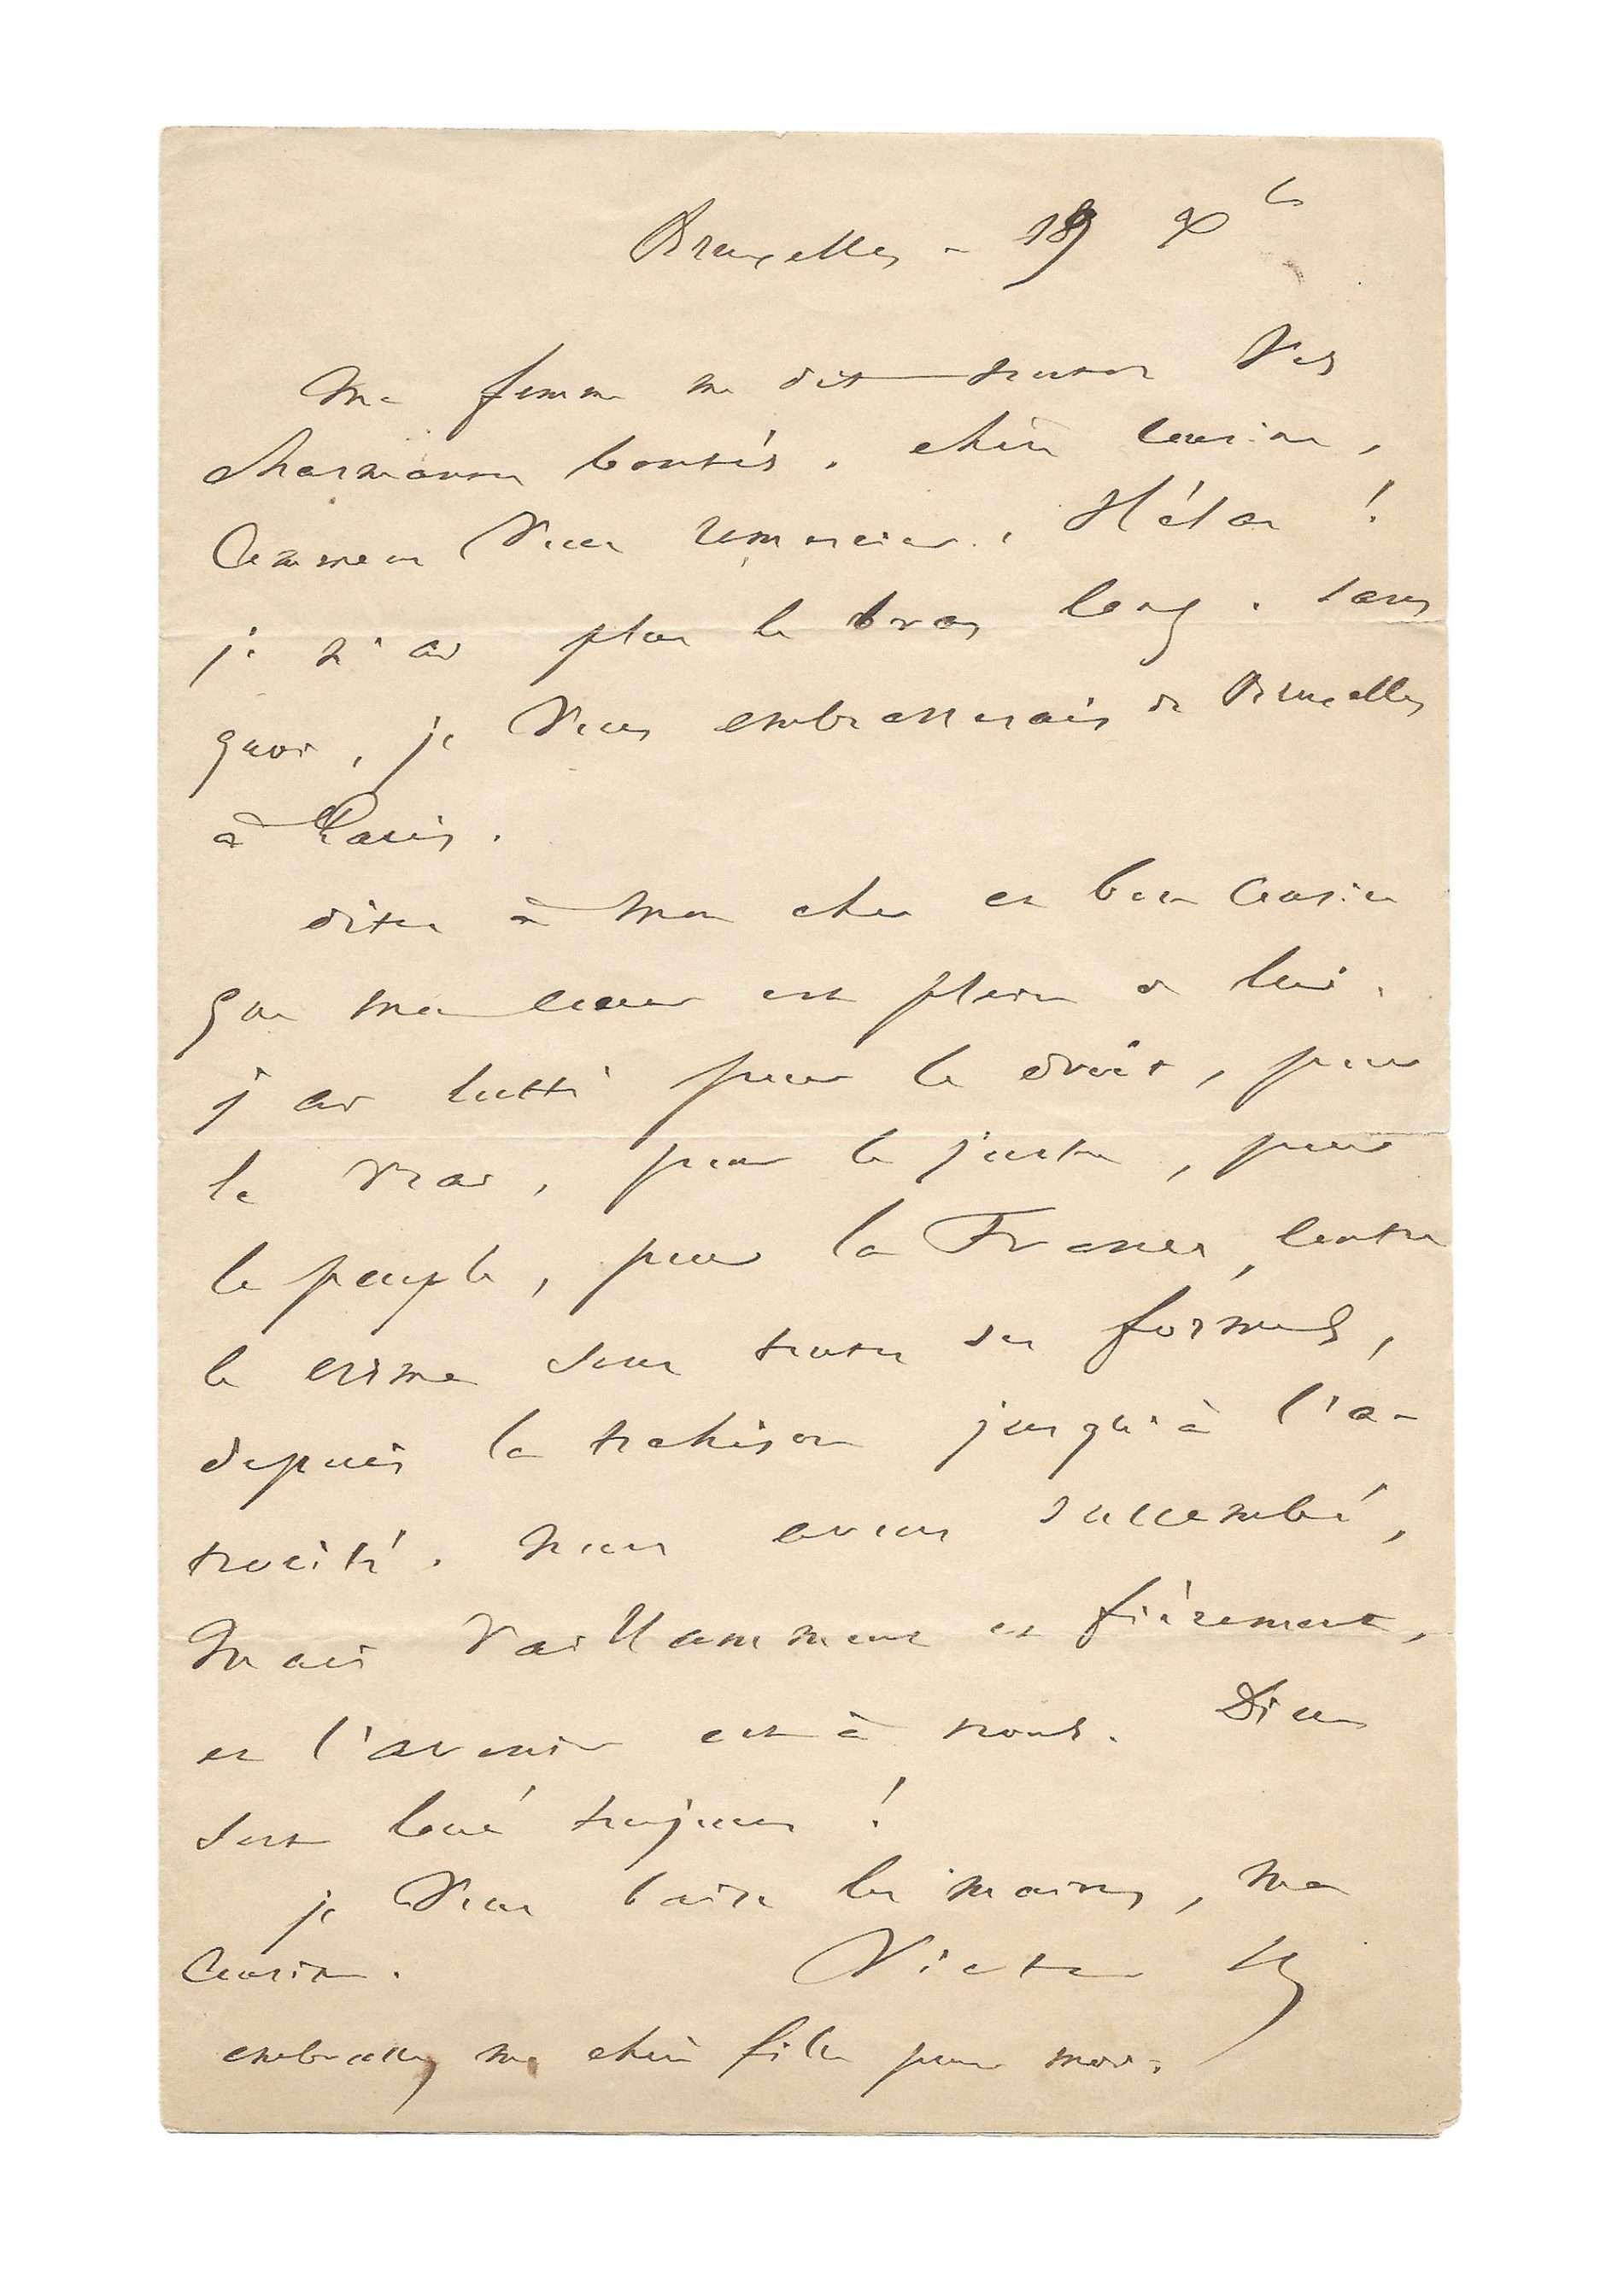 Bruxelles - 19 Xbre
Ma femme me dit toutes vos
charmantes bontés, chère cousine,
Comment vous remercier. Hélas !
je n'ai plus le bras long. sans
quoi, je vous embrasserais de Bruxelles
à Paris.
dites à mon cher et bon Cousin
que mon cœur est plein de lui.
j'ai lutté pour le droit, pour
le vrai, pour le juste, pour
le peuple, pour la France, contre
le crime sous toutes ses formes,
depuis la trahison jusqu'à l'a-
trocité. nous avons succombé,
Mais vaillamment et fièrement,
et l'avenir est à nous. Dieu
soit loué toujours !
je vous baise les mains, ma
Cousine. Victor H
embrassez ma chère fille pour moi.